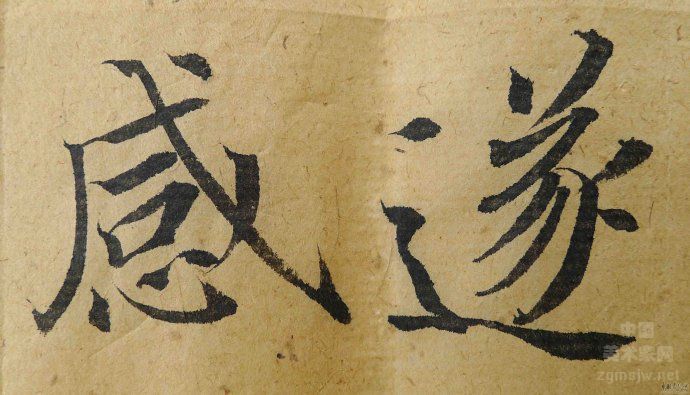 感遂
中国
美术家网
zgmsjw.net